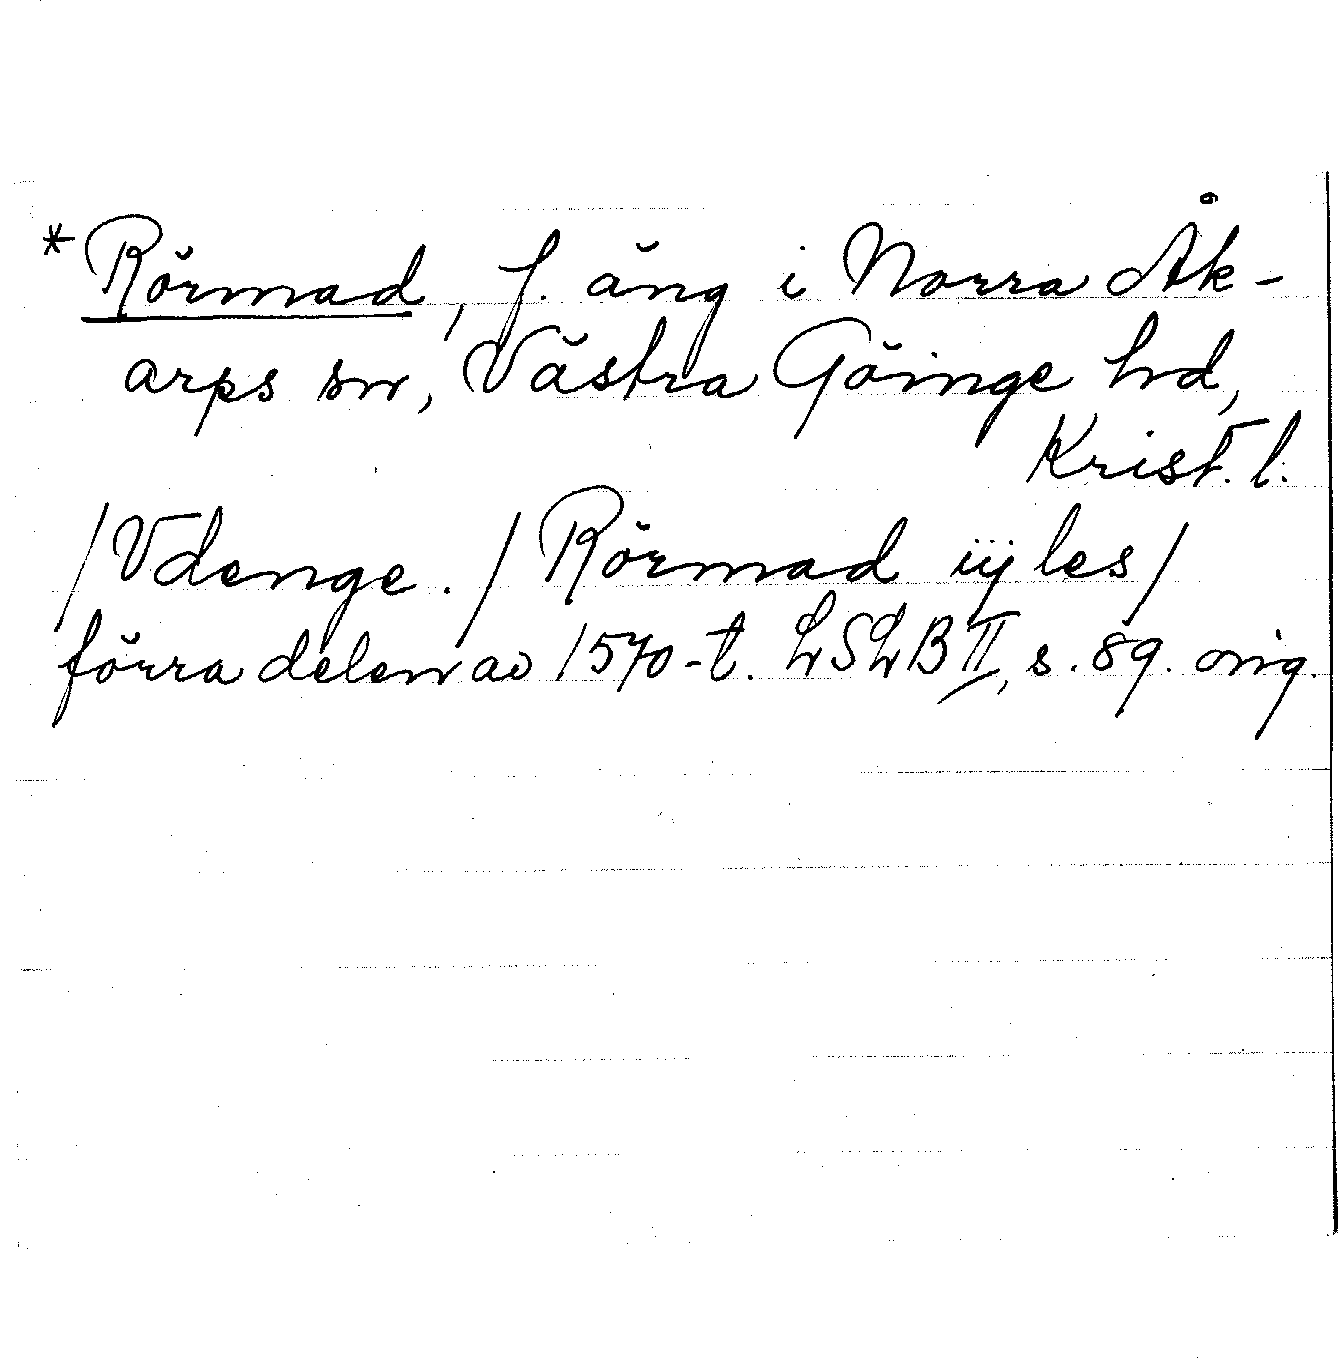 *Rörmad, f. äng i Norra Åk-
arps sn, Västra Göinge hd,
Krist. l.
/Vdenge./ Rörmad iij les/
förra delen av 1570-t. LSLB II, s. 89. orig.